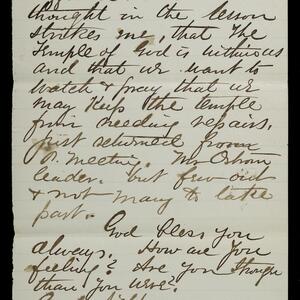 thought in the lesson
strikes me, that the
temple of God is within us
and that we want to
watch & pray, that we
may keep the temple
from needing repairs.
just returned from
P. meeting. Mr Osborn
leader. but few out
& not many to take
part.
God bless you
always. How are you
feeling? Are you stronger
than you were?